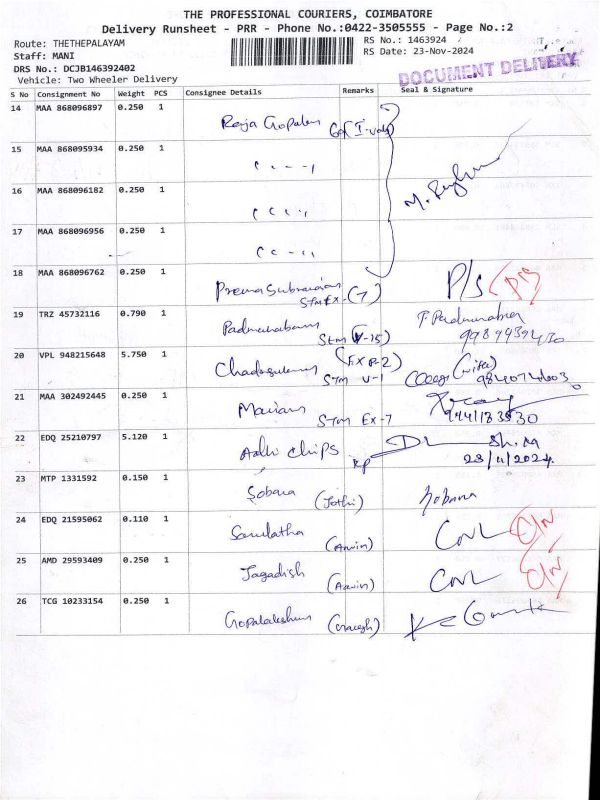 THE PROFESSIONAL COURIERS, COIMBATORE
Delivery Runsheet - PRR - Phone No.:0422-3505555 - Page No.:2
Route: THETHEPALAYAM RS No.: 1463924
Staff: MANI RS Date: 23-Nov-2024
DRS No.: DCJB146392402
DOCUMENT DELIVERY
Vehicle: Two Wheeler Delivery
S No Consignment No Weight PCS Consignee Details Remarks Seal & Signature
14 MAA 868096897 0.250 1 Raja Gopalan
15 MAA 868095934 0.250 1
16 MAA 868096182 0.250 1
17 MAA 868096956 0.250 1
18 MAA 868096762 0.250 1 P/S
STM EX-(7)
19 TRZ 45732116 0.790 1 Padmanaban T. Padmanaban
STM (V-15) 9989439430
20 VPL 948215648 5.750 1 (EXP-2) (wife)
STM V-1
21 MAA 302492445 0.250 1 Mariam
STM EX-7
22 EDQ 25210797 5.120 1 Adhi chips
23/11/2024
23 MTP 1331592 0.150 1 Sobana Sobana
(Jothi)
24 EDQ 21595062 0.110 1
25 AMD 29593409 0.250 1 Jagadish
26 TCG 10233154 0.250 1